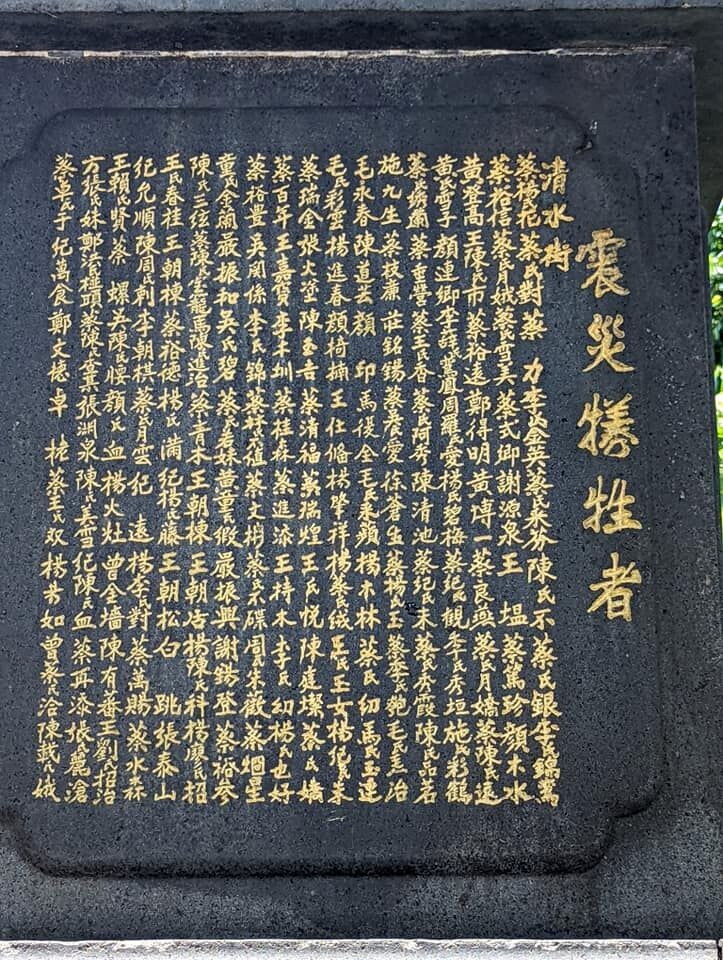 震災犧牲者
清水街
蔡楊氏花 蔡氏對 蔡 力 李氏金英 蔡氏来芬 陳氏不 蔡氏銀 李氏錦鶯
蔡裕信 蔡氏月娥 蔡氏雪美 蔡式卿 謝源泉 王 塭 蔡萬珍 顏木水
黃登高 王陳氏市 蔡裕遠 鄭得明 黃博一 蔡良 蔡氏月嬌 蔡陳氏遠
黃氏雪子 顏連卿 李薛氏鶯鳳 周羅氏愛 楊氏碧梅 蔡紀氏觀 李氏秀垣 施氏彩鶴
蔡重學 蔡王氏香 蔡氏阿秀 陳清池 蔡紀氏末 蔡氏秀霞 陳氏品若
施九生 蔡枝蕭 莊銘錫 蔡彦愛 徐蒼生 蔡楊氏玉 蔡李氏匏 毛氏 治
毛永春 陳直去 顏 印 馬後全 毛氏来蘋 楊木林 蔡氏幼 馬氏玉連
毛氏彩雲 楊進春 顏椅楠 王仕脩 楊肇祥 楊蔡氏絨 王氏玉女 楊紀氏未
蔡瑞金 張火筆 陳玉吉 蔡清福 蔡瑞煌 王氏悦 陳庭燦 蔡氏嬌
蔡百年 王喜寶 李木圳 蔡桂森 蔡進添 王持木 李氏幼 楊氏也好
蔡裕豊 吳関係 李氏錦 蔡林氏值 蔡文彬 蔡氏不碟 周氏朱歡 蔡烟星
童氏余蘭 嚴振和 吳氏碧 蔡氏若妹 黃童氏緞 嚴振興 謝錫登 蔡裕參
陳氏三弦 蔡陳氏玉 馬陳氏進治 蔡青木 王朝棟 王朝 楊陳氏科 楊廖氏招
王氏春桂 王朝棟 蔡裕德 楊氏滿 紀楊氏藤 王朝松 白 跳 張泰山
紀允順 陳周氏刺 李朝棋 蔡氏月雲 紀 遠 楊李氏對 蔡萬賜 蔡水森
王賴氏賢 蔡 螺 吳陳氏腰 顏氏血 楊火灶 曾金墻 陳有蕃 王劉氏招治
方張氏妹 鄭洪氏種頭 蔡陳氏 其 張湖泉 陳氏美雪 紀陳氏血 蔡再添 張氏麗滄
蔡卓氏于 紀萬食 鄭文德 卓 枕 蔡王氏双 楊井如 曾蔡氏洽 陳栽 氏娥